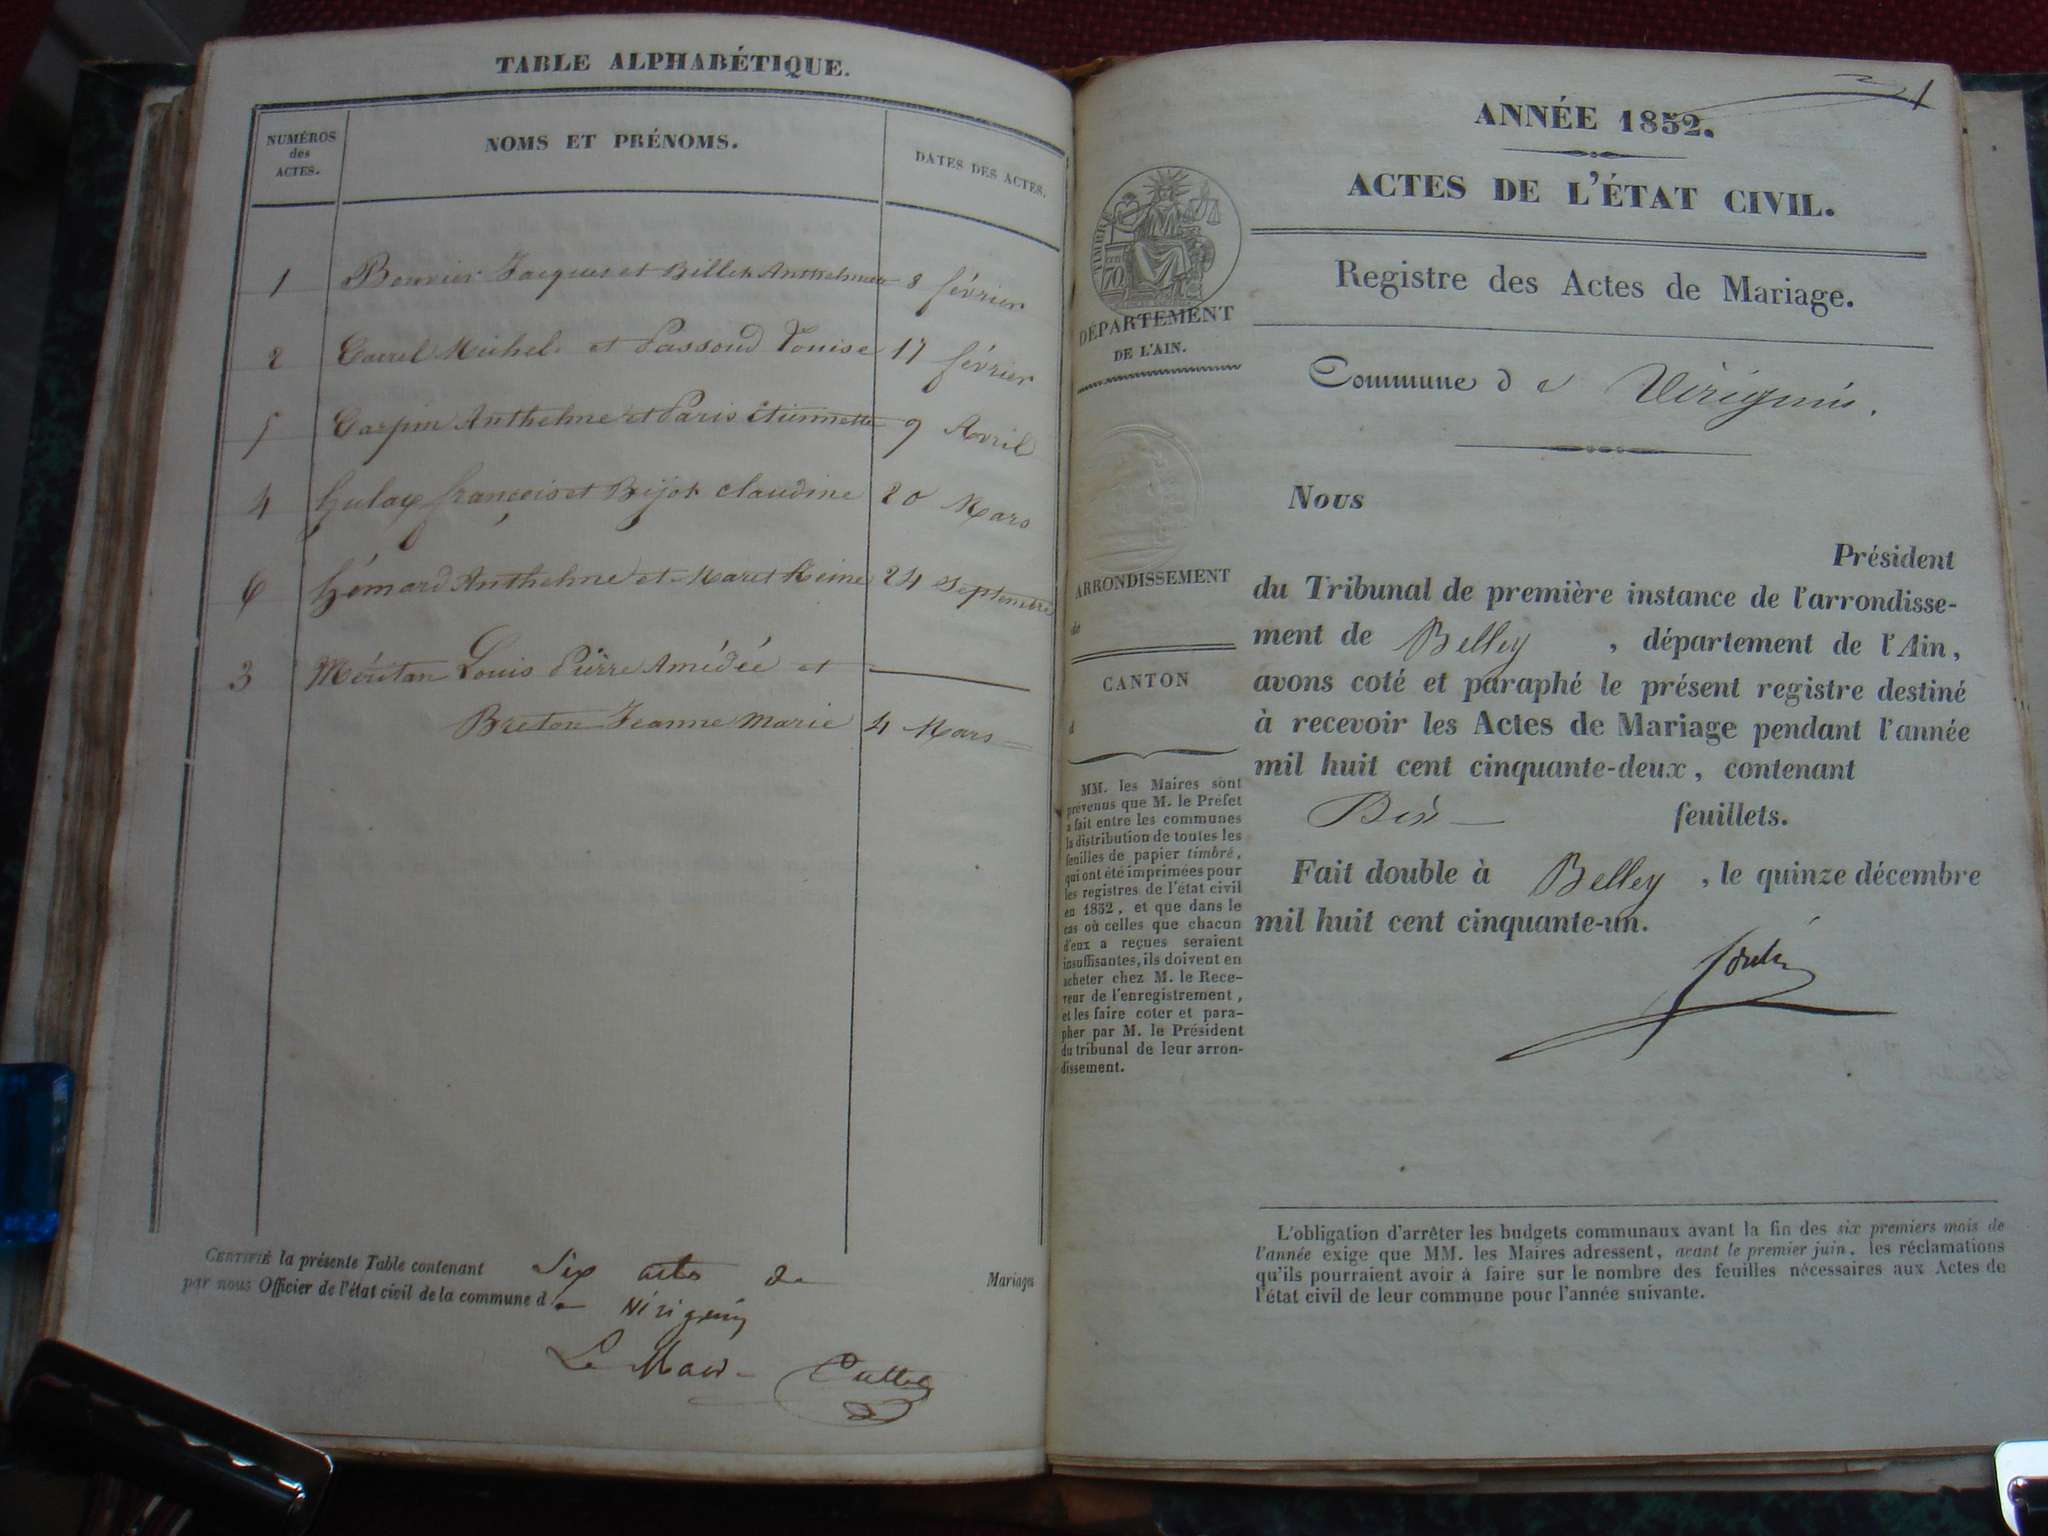 TABLE ALPHABÉTIQUE.
NUMÉROS des ACTES. NOMS ET PRÉNOMS. DATES DES ACTES.
1 Bouvier Jacques et Billet Anthelmette 8 février
2 Carrel Michel et Passoud Louise 17 février
5 Carpin Anthelme et Paris Etiennette 9 Avril
4 françois et Bijot claudine 20 Mars
6 hémard Anthelme et Maret Reine 24 Septembre
3 Méritan Louis Pierre Amédée et
Breton Jeanne Marie 4 Mars
CERTIFIÉ la présente Table contenant Six actes de Mariages
par nous Officier de l'état civil de la commune de Virignin
Le Maire
1
ANNÉE 1852.
ACTES DE L'ÉTAT CIVIL.
Registre des Actes de Mariage.
Commune de Virignin.
TIMBRE
70
DÉPARTEMENT
DE L'AIN.
ARRONDISSEMENT
de
CANTON
d
MM. les Maires sont
prévenus que M. le Préfet
a fait entre les communes
la distribution de toutes les
feuilles de papier timbré,
qui ont été imprimées pour
les registres de l'état civil
en 1852, et que dans le
cas où celles que chacun
d'eux a reçues seraient
insuffisantes, ils doivent en
acheter chez M. le Rece-
veur de l'enregistrement,
et les faire coter et para-
pher par M. le Président
du tribunal de leur arron-
dissement.
Nous
Président
du Tribunal de première instance de l'arrondisse-
ment de Belley, département de l'Ain,
avons coté et paraphé le présent registre destiné
à recevoir les Actes de Mariage pendant l'année
mil huit cent cinquante-deux, contenant
feuillets.
Fait double à Belley, le quinze décembre
mil huit cent cinquante-un.
L'obligation d'arrêter les budgets communaux avant la fin des six premiers mois de
l'année exige que MM. les Maires adressent, avant le premier juin, les réclamations
qu'ils pourraient avoir à faire sur le nombre des feuilles nécessaires aux Actes de
l'état civil de leur commune pour l'année suivante.